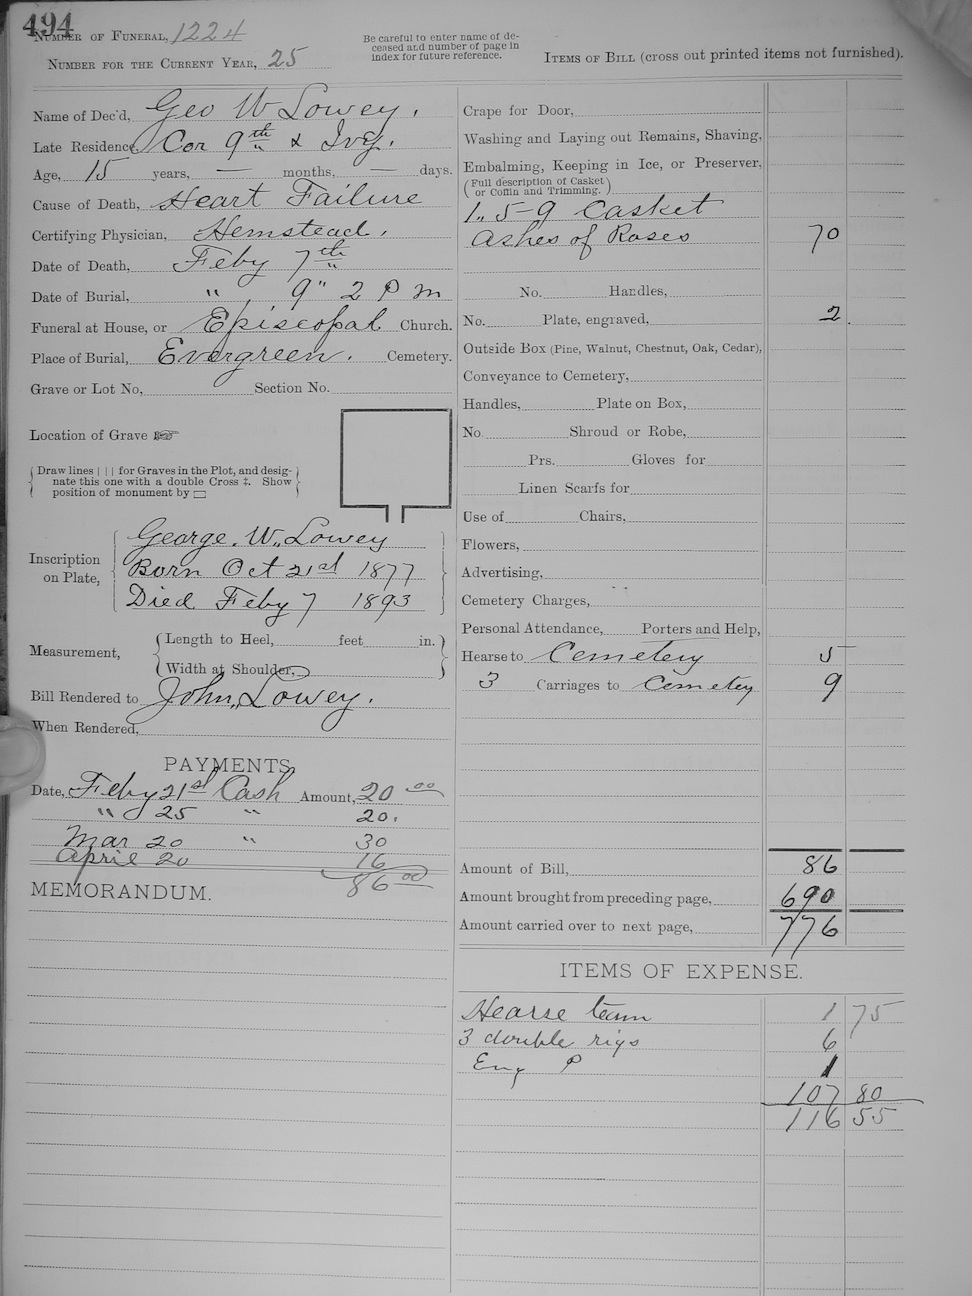 494
Number of Funeral, 1224
Number for the Current Year, 25
Be careful to enter name of de-
ceased and number of page in
index for future reference.
Items of Bill (cross out printed items not furnished).
Name of Dec'd, Geo W Lowey.
Late Residence, Cor 9th & Ivy.
Age, 15 years, — months, — days.
Cause of Death, Heart Failure
Certifying Physician, Hemstead.
Date of Death, Feby 7th
Date of Burial, " 9" 2 P M
Funeral at House, or Episcopal Church.
Place of Burial, Evergreen. Cemetery.
Grave or Lot No, Section No.
Location of Grave ☞
Draw lines | | | for Graves in the Plot, and desig-
nate this one with a double Cross ‡. Show
position of monument by ▭
Inscription
on Plate,
George. W. Lowey
Born Oct 21st 1877
Died Feby 7 1893
Measurement,
Length to Heel, feet in.
Width at Shoulder,
Bill Rendered to John. Lowey.
When Rendered,
PAYMENTS.
Date, Feby 21st Cash Amount, 20 00
" 25 " 20.
Mar 20 " 30
April 20 16
86 00
MEMORANDUM.
Crape for Door,
Washing and Laying out Remains, Shaving,
Embalming, Keeping in Ice, or Preserver,
(Full description of Casket
or Coffin and Trimming.)
1,, 5-9 Casket
Ashes of Roses 70
No. Handles,
No. Plate, engraved, 2.
Outside Box (Pine, Walnut, Chestnut, Oak, Cedar),
Conveyance to Cemetery,
Handles, Plate on Box,
No. Shroud or Robe,
Prs. Gloves for
Linen Scarfs for
Use of Chairs,
Flowers,
Advertising,
Cemetery Charges,
Personal Attendance, Porters and Help,
Hearse to Cemetery 5
3 Carriages to Cemetey 9
Amount of Bill, 86
Amount brought from preceding page, 690
Amount carried over to next page, 776
ITEMS OF EXPENSE.
Hearse team 1 75
3 double rigs 6
Eng P 1
107 80
116 55